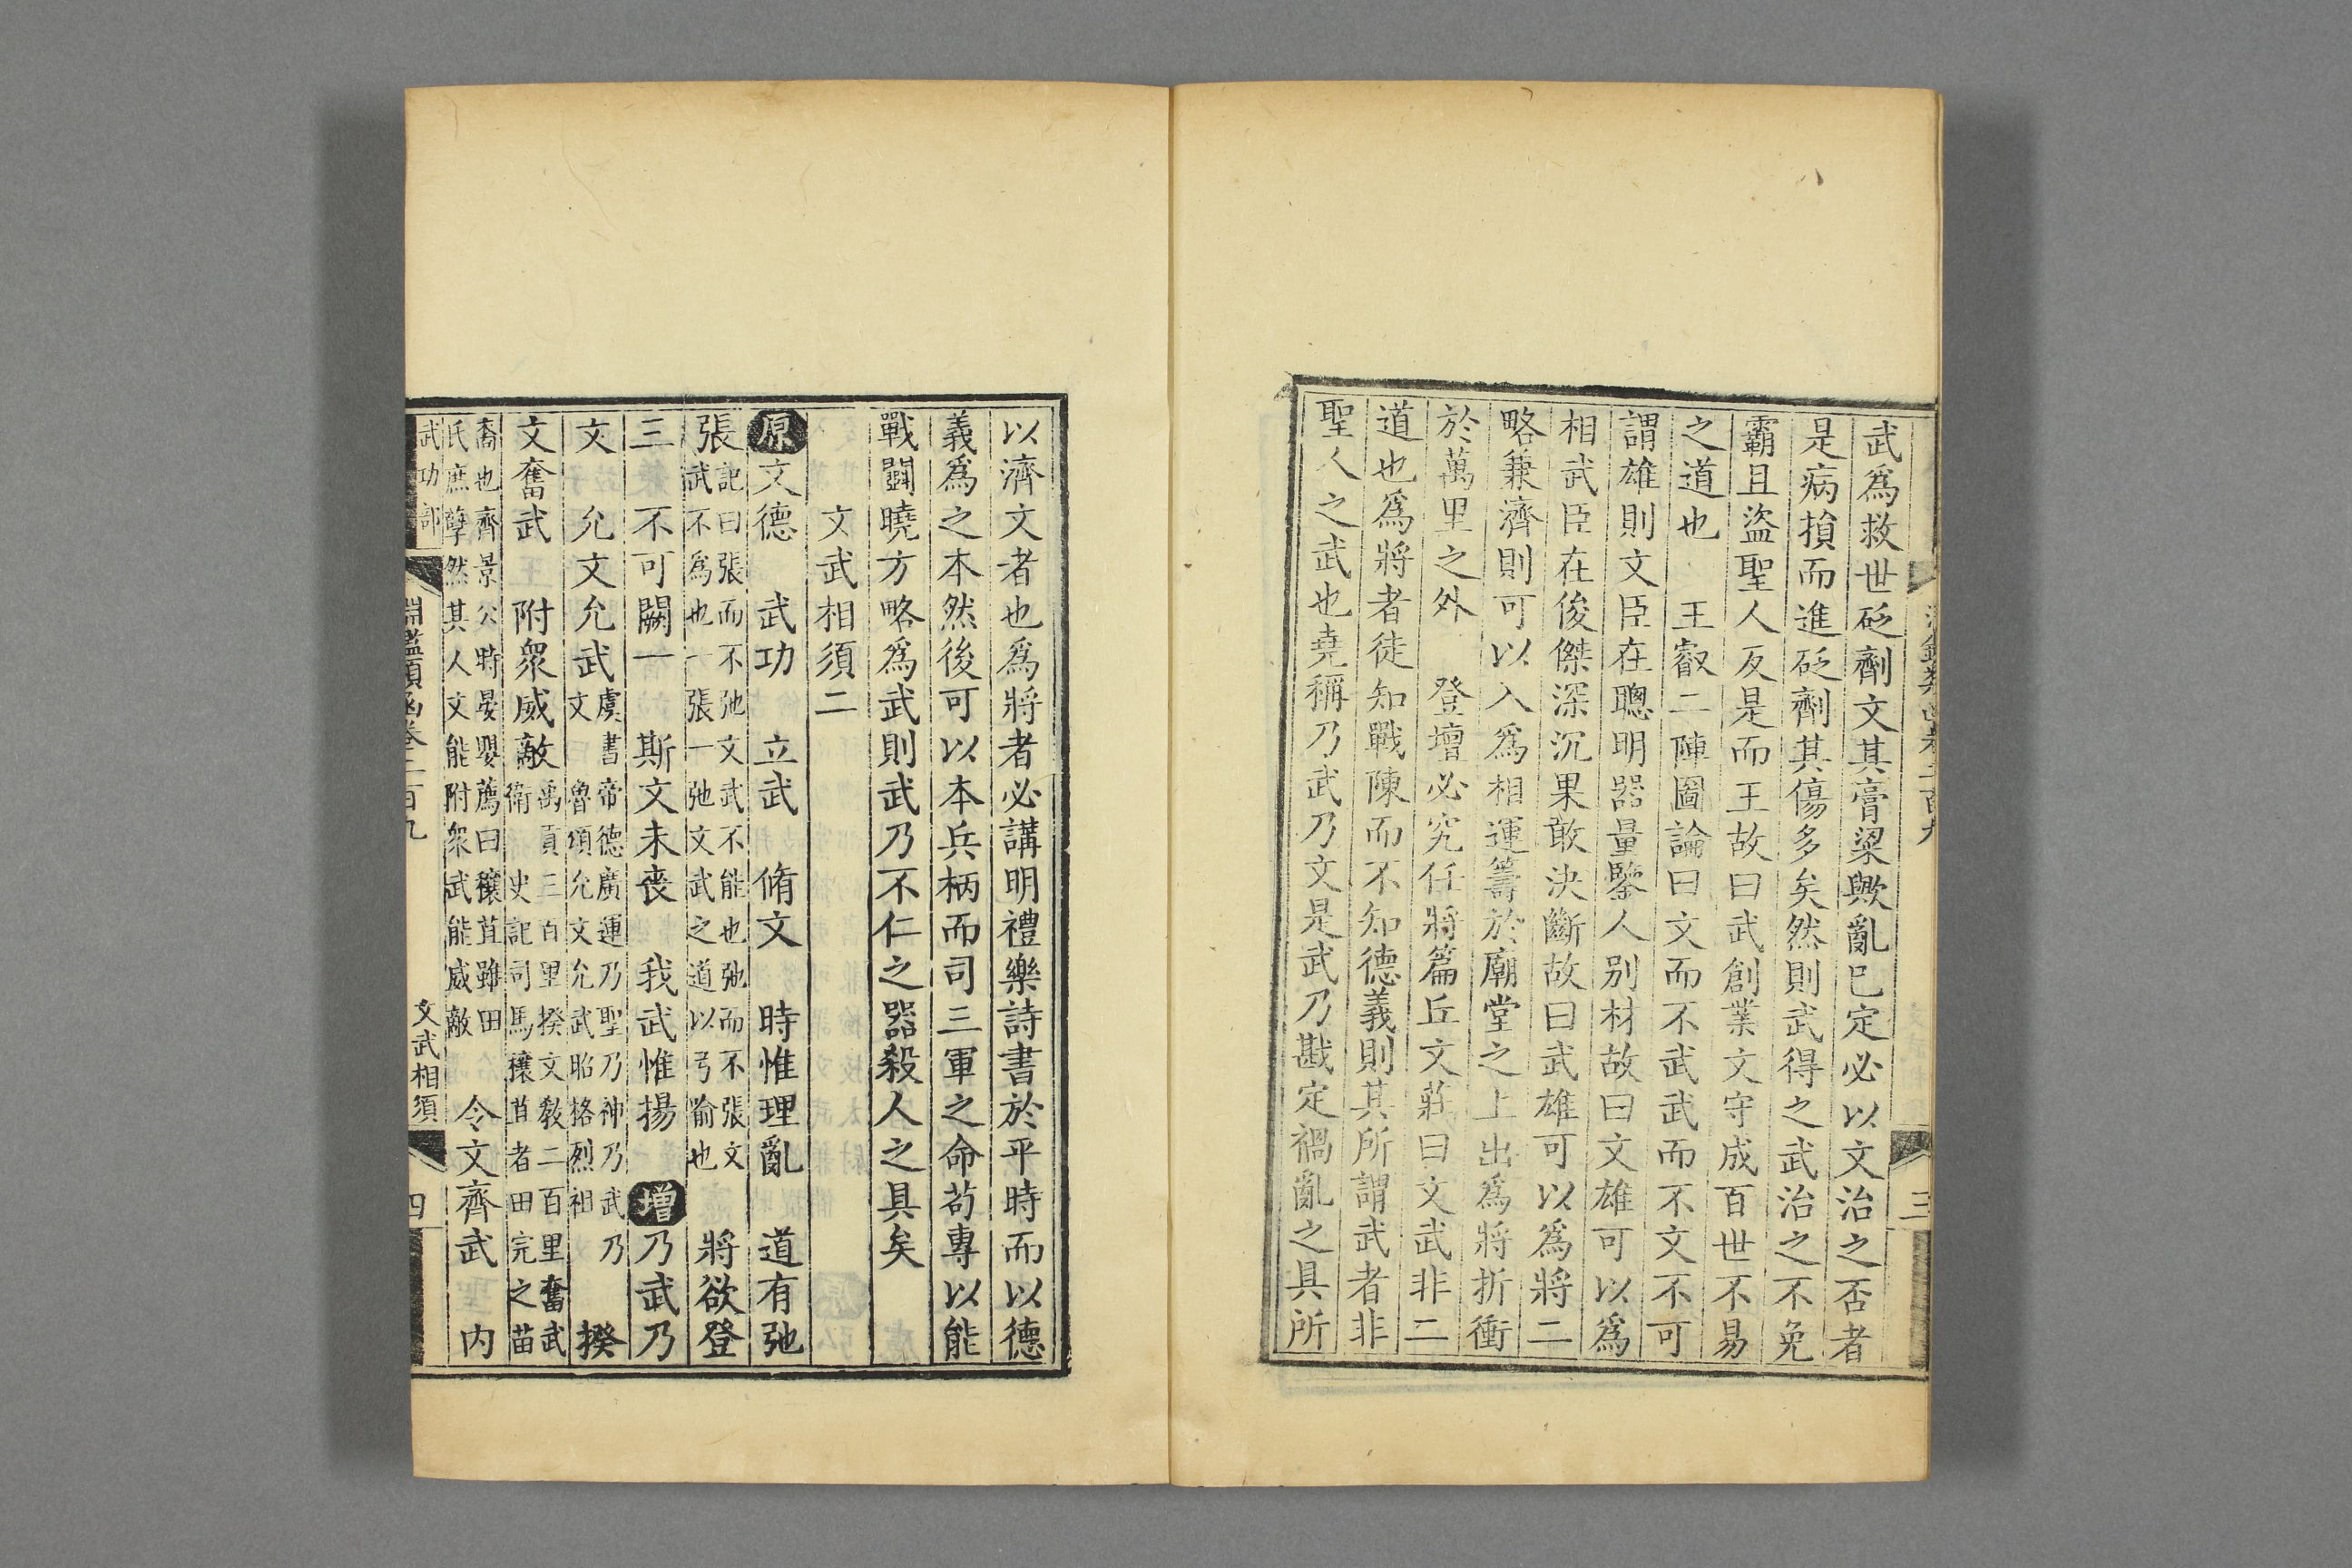 武爲救世砭劑文其膏粱歟亂已定必以文治之否者
是病損而進砭劑其傷多矣然則武得之武治之不免
霸且盜聖人反是而王故曰武創業文守成百世不易
之道也　王叡二陣圖論曰文而不武武而不文不可
謂雄則文臣在聰明器量鑒人別材故曰文雄可以爲
相武臣在俊傑深沉果敢決斷故曰武雄可以爲將二
略兼濟則可以入爲相運籌於廟堂之上出爲將折衝
於萬里之外　登壇必究任將篇丘文莊曰文武非二
道也爲將者徒知戰陳而不知德義則其所謂武者非
聖人之武也堯稱乃武乃文是武乃戡定禍亂之具所
三
以濟文者也爲將者必講明禮樂詩書於平時而以德
義爲之本然後可以本兵柄而司三軍之命苟專以能
戰鬬曉方略爲武則武乃不仁之器殺人之具矣
文武相須二
原文德　武功　立武　脩文　時惟理亂　道有弛
張記曰張而不弛文武不能也弛而不張文
武不爲也一張一弛文武之道以弓喻也　將欲登
三　不可闕一　斯文未喪　我武惟揚　增乃武乃
文　允文允武虞書帝德廣運乃聖乃神乃武乃
文　魯頌允文允武昭格烈祖　揆
文奮武　附衆威敵禹貢三百里揆文教二百里奮武
衛　史記司馬穰苴者田完之苗
裔也齊景公時晏嬰薦曰穰苴雖田
氏庶孽然其人文能附衆武能威敵　令文齊武　内
武功部　淵鑑類函卷二百九　文武相須　四